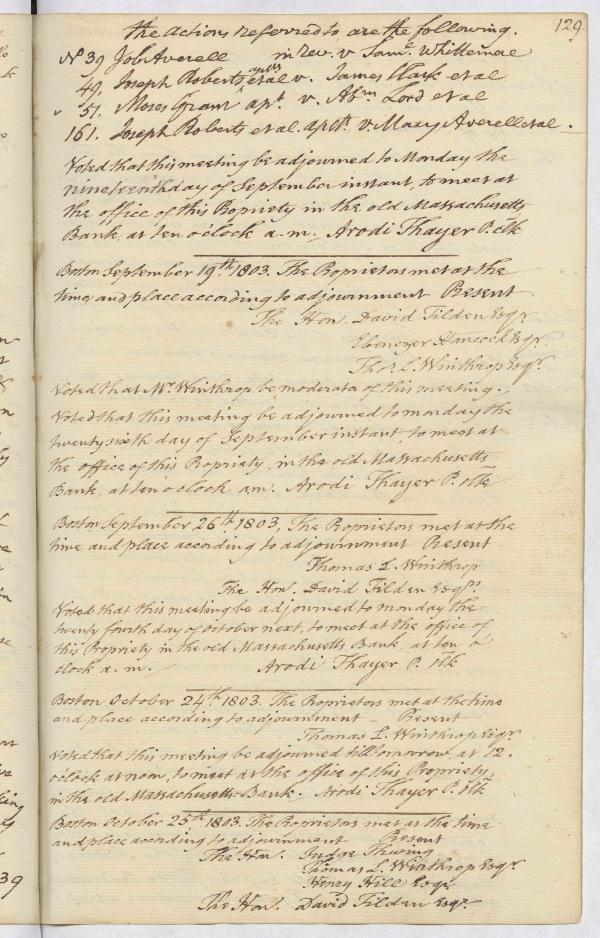 129
the actions referred to are the following.
No 39 Job Averell in rev. v Saml. Whittemore
49. Joseph Roberts aplts et al v. James Clark et al
51. Moses Grant apt. v. Abm Lord et al
161. Joseph Roberts et al. aplts. v Mary Averell et al.
Voted that this meeting be adjourned to Monday the
nineteenth day of September instant, to meet at
the office of this Propriety in the old Massachusetts
Bank, at ten o'clock a.m. Arodi Thayer P. Clk
Boston September 19th. 1803. The Proprietors met at the
time and place according to adjournment Present
The Hon. David Tilden Esqr
Ebenezer Hancock Esqr.
Thos L. Winthrop Esqr.
Voted that Mr. Winthrop, be moderator of this meeting.
Voted that this meeting be adjourned to monday the
twenty sixth day of September instant, to meet at
the office of this Propriety, in the old Massachusetts
Bank, at ten o'clock a.m. Arodi Thayer P. Clk
Boston September 26th 1803. The Proprietors met at the
time and place according to adjournment Present
Thomas L. Winthrop
The Hon. David Tilden Esqrs
Voted that this meeting be adjourned to monday the
twenty fourth day of October next, to meet at the office of
this Propriety in the old Massachusetts Bank, at ten o'
clock a.m. Arodi Thayer P. Clk
Boston October 24th 1803. The Proprietors met at the time
and place according to adjournment - Present
Thomas L. Winthrop Esqr
Voted that this meeting be adjourned till tomorrow, at 12.
o'clock at noon, to meet at the office of this Propriety,
in the old Massachusetts Bank. Arodi Thayer P. Clk
Boston October 25th 1803. The Proprietors met at the time
and place according to adjournment Present
The Hon. Judge Thwing
Thomas L. Winthrop Esqr.
Henry Hill Esqr.
The Honl. David Tilden Esqr.
39